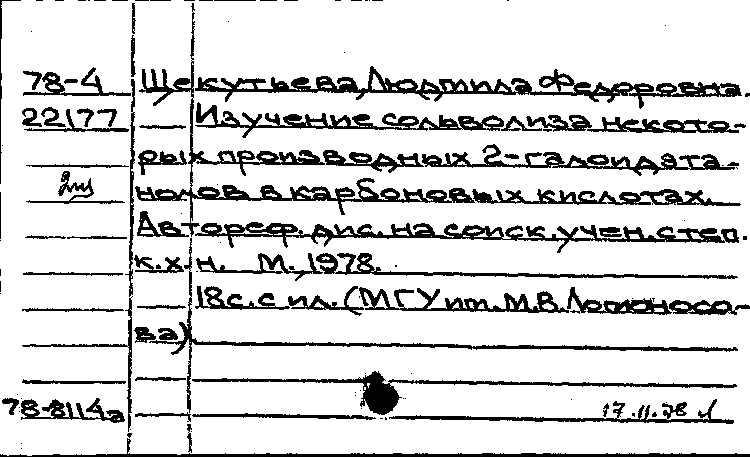 78-4 Щекутьева, Людмила Федоровна.
22177 Изучение сольволиза некото-
рых производных 2-галоидэта-
нолов в карбоновых кислотах.
Автореф. дис. на соиск. учен. степ.
к.х.н. М., 1978.
18 с. с ил. (МГУ им. М.В. Ломоносо-
ва)
78-8114а 17.11.78